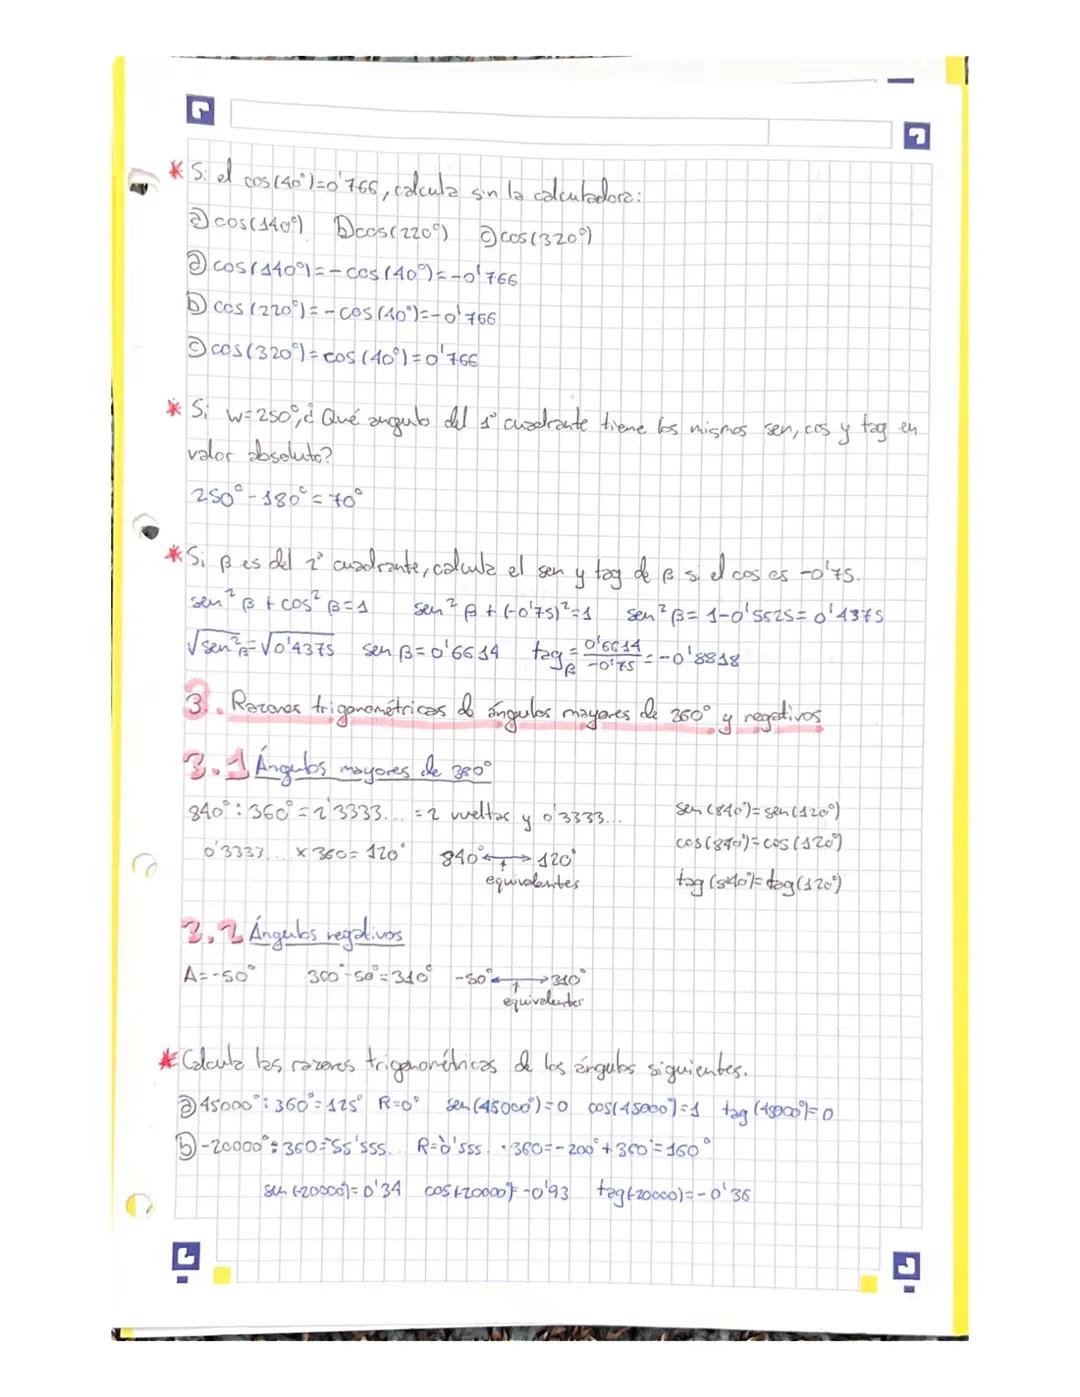 * Si el cos(40°)=0'766, calcula sin la calculadora:
a) cos(140°) b) cos(220°) c) cos(320°)
a) cos(140°)=-cos(40°)=-0'766
b) cos(220°)=-cos(40°)=-0'766
c) cos(320°)=cos(40°)=0'766
* Si w=250°, ¿Qué angulo del 1º cuadrante tiene los mismos sen, cos y tag en
valor absoluto?
250°-180°=70°
* Si β es del 2º cuadrante, calcula el sen y tag de β si el cos es -0'75.
sen² β + cos² β=1 sen² β + (-0'75)²=1 sen² β= 1-0'5625= 0'4375
√sen² β=√0'4375 sen β=0'6614 tag β = 0'6614/-0'75 = -0'8818
3. Razones trigonométricas de ángulos mayores de 360° y negativos
3.1 Ángulos mayores de 360°
840° : 360° = 2'3333... = 2 vueltas y 0'3333... sen(840°)=sen(120°)
cos(840°)=cos(120°)
0'3333... x 360= 120° 840° ↔ 120°
equivalentes tag(840°)=tag(120°)
3.2 Ángulos negativos
A=-50° 360°-50°=310° -50° ↔ 310°
equivalentes
* Calcula las razones trigonométricas de los ángulos siguientes.
a) 45000° : 360°= 125° R=0° sen(45000°)=0 cos(45000°)=1 tag(45000°)=0
b) -20000° : 360=-55'555... R=0'555... ·360=-200°+360°=160°
sen(-20000)=0'34 cos(-20000)=-0'93 tag(-20000)=-0'36